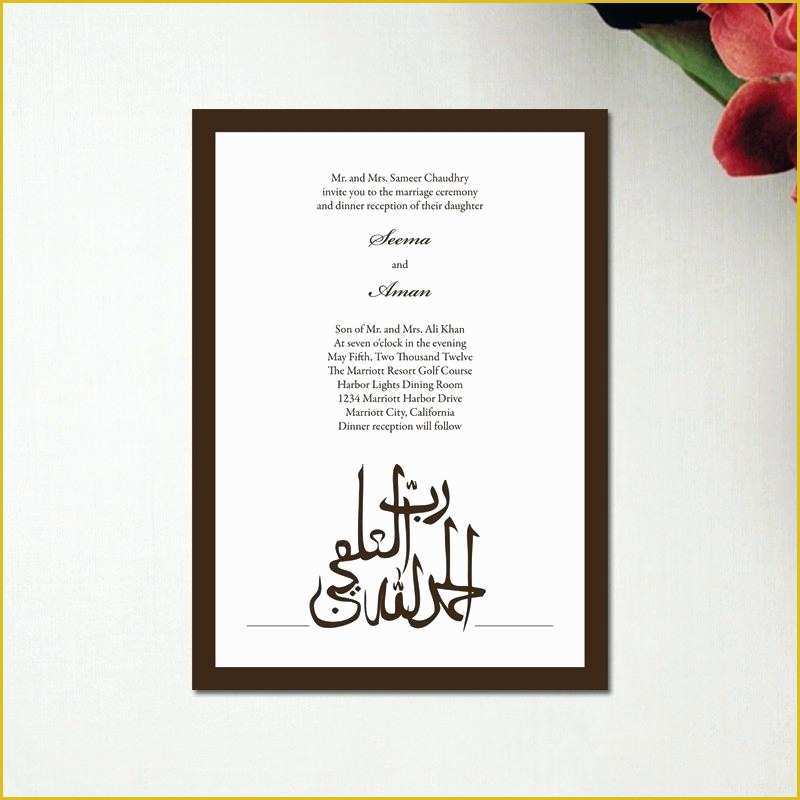 Mr. and Mrs. Sameer Chaudhry
invite you to the marriage ceremony
and dinner reception of their daughter
Seema
and
Aman
Son of Mr. and Mrs. Ali Khan
At seven o'clock in the evening
May Fifth, Two Thousand Twelve
The Marriott Resort Golf Course
Harbor Lights Dining Room
1234 Marriott Harbor Drive
Marriott City, California
Dinner reception will follow
الحمد لله
ربّ العلمين